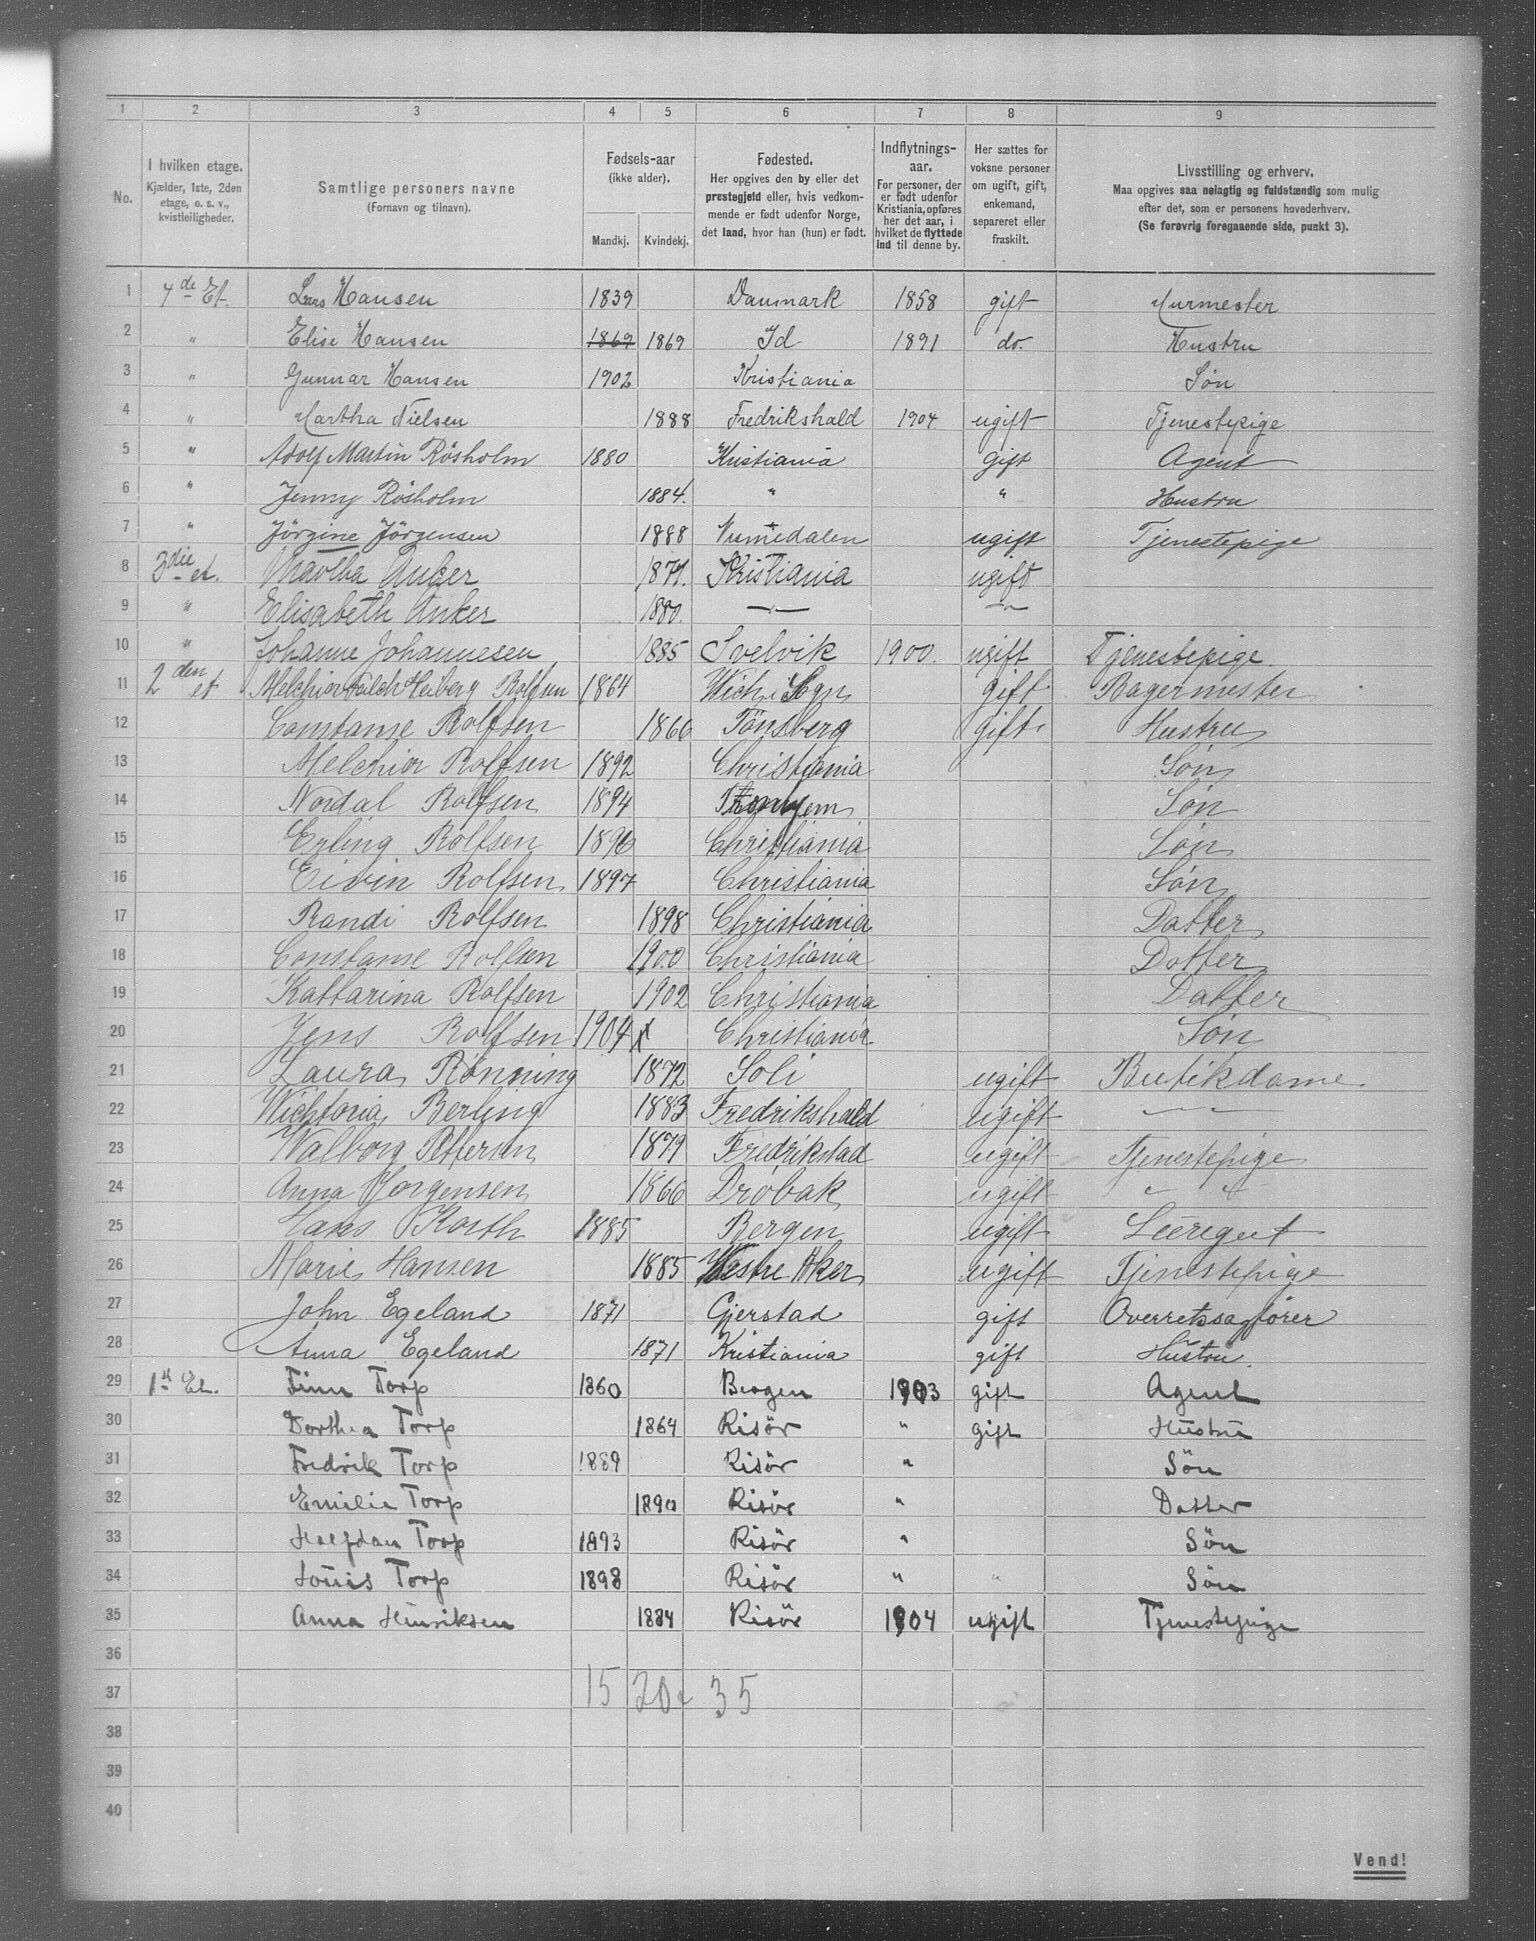 1 2 3 4 5 6 7 8 9
No. I hvilken etage. Kjælder, 1ste, 2den etage, o. s. v., kvistleiligheder. Samtlige personers navne (Fornavn og tilnavn). Fødsels-aar (ikke alder). Mandkj. Kvindekj. Fødested. Her opgives den by eller det prestegjeld eller, hvis vedkommende er født udenfor Norge, det land, hvor han (hun) er født. Indflytnings-aar. For personer, der er født udenfor Kristiania, opføres her det aar, i hvilket de flyttede ind til denne by. Her sættes for voksne personer om ugift, gift, enkemand, separeret eller fraskilt. Livsstilling og erhverv. Maa opgives saa nøiagtig og fuldstændig som mulig efter det, som er personens hovederhverv. (Se forøvrig foregaaende side, punkt 3).
1 4de Et. Lars Hansen 1839 Danmark 1858 gift Murmester
2 " Elise Hansen 1869 1869 Id 1891 do. Hustru
3 " Gunnar Hansen 1902 Kristiania Søn
4 " Martha Nielsen 1888 Fredrikshald 1904 ugift Tjenestepige
5 " Adolf Martin Røsholm 1880 Kristiania gift Agent
6 " Jenny Røsholm 1884. " " Hustru
7 " Jörgine Jörgensen 1888 Numedalen ugift Tjenestepige
8 3die et. Martha Anker 1871. Kristiania ugift
9 " Elisabeth Anker 1880. — " — — " —
10 " Johanne Johannesen 1885 Svelvik 1900. ugift Tjenestepige.
11 2den et Melchior Falch Heiberg Rolfsen 1864 Wich i Sogn gift Bagermester
12 Constanse Rolfsen 1866 Tönsberg gift. Hustru
13 Melchior Rolfsen 1892 Christiania Søn
14 Nordal Rolfsen 1894 Tronhjem Søn
15 Erling Rolfsen 1896 Christiania Søn
16 Eivin Rolfsen 1897 Christiania Søn
17 Randi Rolfsen 1898 Christiania Datter
18 Constanse Rolfsen 1900 Christiania Dotter
19 Kattarina Rolfsen 1902 Christiania Datter
20 Jens Rolfsen 1904 x Christiania Søn
21 Laura Rønning 1872 Soli ugift Butikdame
22 Wichtoria Berling 1883 Fredrikshald ugift — " —
23 Walborg Pettersen 1879 Fredrikstad ugift Tjenestepige
24 Anna Jørgensen 1866 Drøbak ugift " "
25 Hans Korth 1885 Bergen ugift Leeregut
26 Marie Hansen 1885 Vestre Aker ugift Tjenestepige
27 John Egeland 1871 Gjerstad gift Overretssagfører
28 Anna Egeland 1871 Kristiania gift Hustru.
29 1st Et. Finn Torp 1860 Bergen 1903 gift Agent
30 Dorthea Torp 1864 Risör " gift Hustru
31 Fredrik Torp 1889 Risör " Sön
32 Emilie Torp 1890 Risör " Datter
33 Halfdan Torp 1893 Risör " Sön
34 Louis Torp 1898 Risör " " Sön
35 Anna Hinriksen 1884 Risör 1904 ugift Tjenestepige
36
37 15 20 35
38
39
40
Vend!